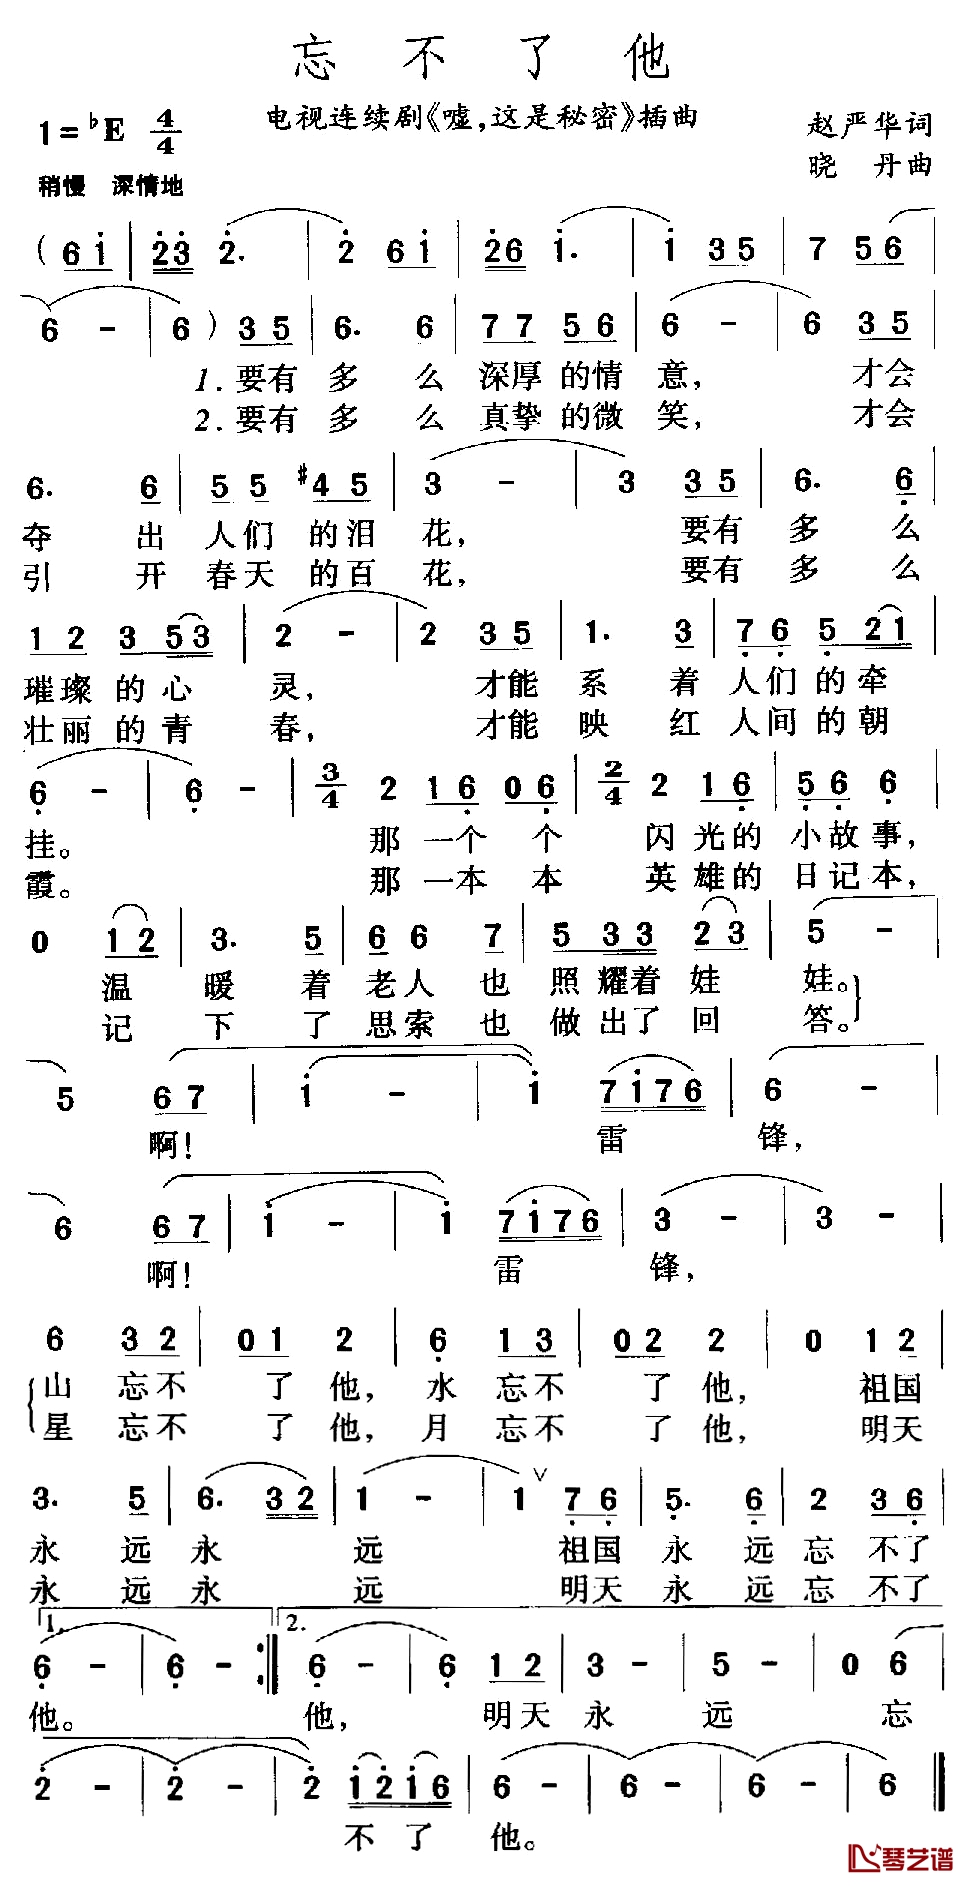 忘不了他
电视连续剧《嘘,这是秘密》插曲
1=♭E 4/4
赵严华词
晓 丹曲
稍慢 深情地
( 6 i | 2 3 2. | 2 6 i | 2 6 i. | i 3 5 | 7 5 6 |
6 - | 6 ) 3 5 | 6. 6 | 7 7 5 6 | 6 - | 6 3 5 |
1.要有 多 么 深厚 的情 意, 才会
2.要有 多 么 真挚 的微 笑, 才会
6. 6 | 5 5 #4 5 | 3 - | 3 3 5 | 6. 6 |
夺 出 人们 的泪 花, 要有 多 么
引 开 春天 的百 花, 要有 多 么
1 2 3 5 3 | 2 - | 2 3 5 | 1. 3 | 7 6 5 2 1 |
璀璨 的 心 灵, 才能 系 着 人们 的 牵
壮丽 的 青 春, 才能 映 红 人间 的 朝
6 - | 6 - | 3/4 2 1 6 0 6 | 2/4 2 1 6 | 5 6 6 |
挂。 那 一个 个 闪 光的 小故 事,
霞。 那 一本 本 英 雄的 日记 本,
0 1 2 | 3. 5 | 6 6 7 | 5 3 3 2 3 | 5 - |
温 暖 着 老人 也 照 耀着 娃 娃。
记 下 了 思索 也 做 出了 回 答。
5 6 7 | i - | i 7 i 7 6 | 6 - |
啊! 雷 锋,
6 6 7 | i - | i 7 i 7 6 | 3 - | 3 - |
啊! 雷 锋,
6 3 2 | 0 1 2 | 6 1 3 | 0 2 2 | 0 1 2 |
山 忘不 了 他, 水 忘不 了 他, 祖国
星 忘不 了 他, 月 忘不 了 他, 明天
3. 5 | 6. 3 2 | 1 - | 1 ∨ 7 6 | 5. 6 | 2 3 6 |
永 远 永 远 祖国 永 远 忘 不了
永 远 永 远 明天 永 远 忘 不了
1. 2.
6 - | 6 - :‖ 6 - | 6 1 2 | 3 - | 5 - | 0 6 |
他。 他, 明天 永 远 忘
2 - | 2 - | 2 i 2 i 6 | 6 - | 6 - | 6 - | 6 ‖
不 了 他。
琴艺谱